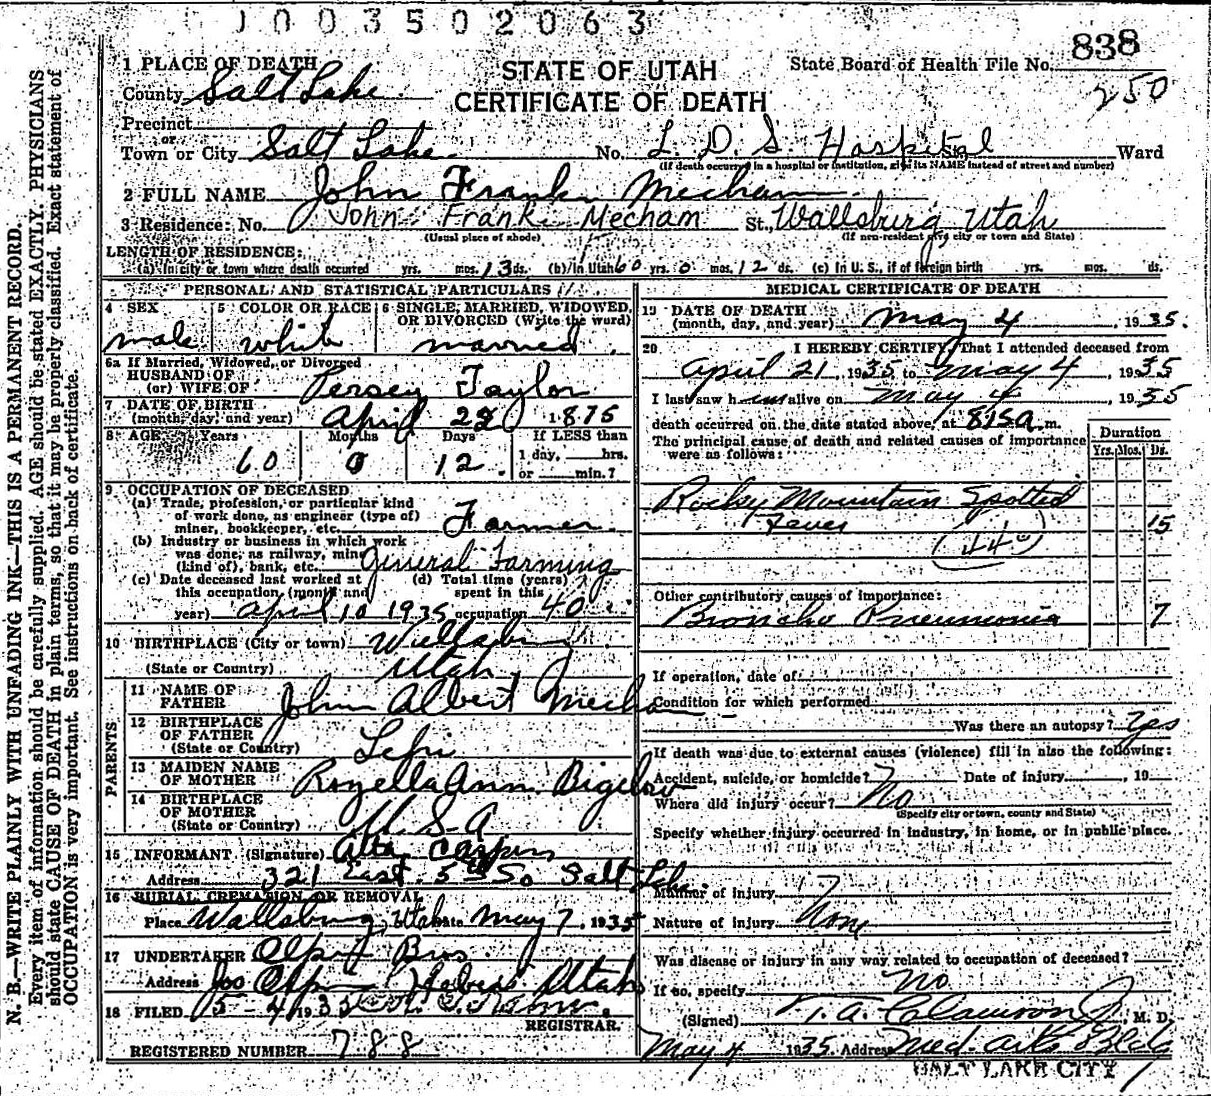 1003502063
838
1 PLACE OF DEATH
STATE OF UTAH
State Board of Health File No.
250
County Salt Lake
CERTIFICATE OF DEATH
Precinct
or
Town or City Salt Lake No. L. D. S. Hospital Ward
(If death occurred in a hospital or institution, give its NAME instead of street and number)
2 FULL NAME John Frank Mecham
3 Residence: No. John Frank Mecham St., Wallsburg Utah
(Usual place of abode) (If non-resident give city or town and State)
LENGTH OF RESIDENCE:
(a) In city or town where death occurred yrs. mos. 13 ds. (b) In Utah 60 yrs. 0 mos. 12 ds. (c) In U. S., if of foreign birth yrs. mos. ds.
PERSONAL AND STATISTICAL PARTICULARS
4 SEX 5 COLOR OR RACE 6 SINGLE, MARRIED, WIDOWED, OR DIVORCED (Write the word)
male white married
6a If Married, Widowed, or Divorced
HUSBAND OF
(or) WIFE OF Persey Taylor
7 DATE OF BIRTH
(month, day, and year) April 22 1875
8 AGE Years Months Days If LESS than
60 0 12 1 day, hrs.
or min.?
9 OCCUPATION OF DECEASED
(a) Trade, profession, or particular kind
of work done, as engineer (type of)
miner, bookkeeper, etc. Farmer
(b) Industry or business in which work
was done, as railway, mine
(kind of), bank, etc. General Farming
(c) Date deceased last worked at (d) Total time (years)
this occupation (month and spent in this
year) April 10 1935 occupation 40
10 BIRTHPLACE (City or town) Wallsburg
(State or Country) Utah
PARENTS
11 NAME OF
FATHER John Albert Mecham
12 BIRTHPLACE
OF FATHER
(State or Country) Lehi
13 MAIDEN NAME
OF MOTHER Rozella Ann Bigelow
14 BIRTHPLACE
OF MOTHER
(State or Country) U. S. A.
15 INFORMANT (Signature) Alta
Address 321 East 5th So Salt Lake
16 BURIAL, CREMATION, OR REMOVAL
Place Wallsburg, Utah Date May 7, 1935
17 UNDERTAKER Olpin Bros.
Address Heber Utah
18 FILED 5-4 1935
REGISTRAR.
REGISTERED NUMBER 788
MEDICAL CERTIFICATE OF DEATH
19 DATE OF DEATH
(month, day, and year) May 4, 1935.
20 I HEREBY CERTIFY, That I attended deceased from
April 21, 1935 to May 4, 1935
I last saw him alive on May 4, 1935
death occurred on the date stated above, at 815a. m.
The principal cause of death and related causes of importance Duration
were as follows: Yrs. Mos. Ds.
Rocky Mountain Spotted
Fever 15
Other contributory causes of importance:
Broncho Pneumonia 7
If operation, date of
Condition for which performed
Was there an autopsy? Yes
If death was due to external causes (violence) fill in also the following:
Accident, suicide, or homicide? Date of injury, 19
Where did injury occur? No
(Specify city or town, county and State)
Specify whether injury occurred in industry, in home, or in public place.
Manner of injury
Nature of injury None
Was disease or injury in any way related to occupation of deceased?
If so, specify No
(Signed) T. A. Clawson Jr., M. D.
May 4 1935 Address Med. Arts Bldg
SALT LAKE CITY
N. B.—WRITE PLAINLY WITH UNFADING INK—THIS IS A PERMANENT RECORD.
Every item of information should be carefully supplied. AGE should be stated EXACTLY. PHYSICIANS
should state CAUSE OF DEATH in plain terms, so that it may be properly classified. Exact statement of
OCCUPATION is very important. See instructions on back of certificate.